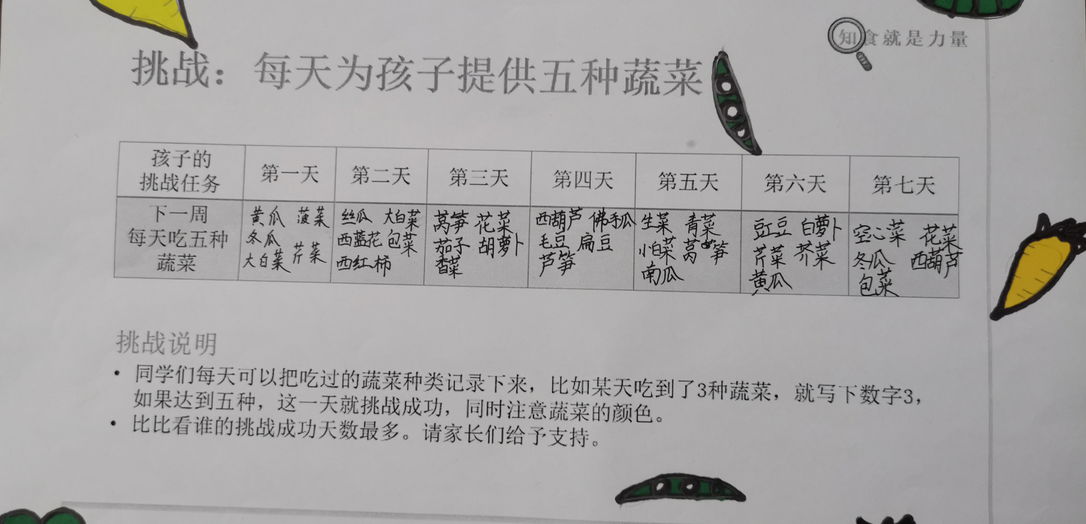 知食就是力量
挑战：每天为孩子提供五种蔬菜
孩子的
挑战任务
第一天
第二天
第三天
第四天
第五天
第六天
第七天
下一周
每天吃五种
蔬菜
黄瓜 菠菜
冬瓜
大白菜 芹菜
丝瓜 大白菜
西蓝花 包菜
西红柿
莴笋 花菜
茄子 胡萝卜
香菜
西葫芦 佛手瓜
毛豆 扁豆
芦笋
生菜 青菜
小白菜 莴笋
南瓜
豇豆 白萝卜
芹菜 芥菜
黄瓜
空心菜 花菜
冬瓜 西葫芦
包菜
挑战说明
• 同学们每天可以把吃过的蔬菜种类记录下来，比如某天吃到了3种蔬菜，就写下数字3，
如果达到五种，这一天就挑战成功，同时注意蔬菜的颜色。
• 比比看谁的挑战成功天数最多。请家长们给予支持。